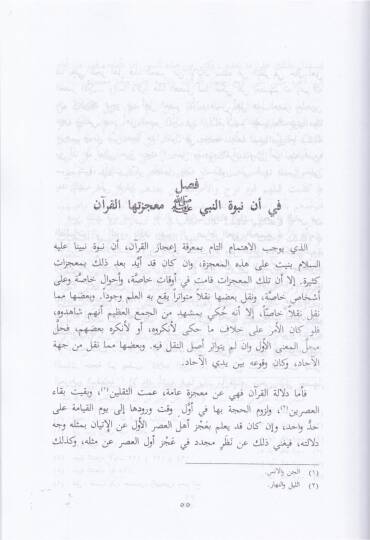 فصل
في أن نبوة النبي ﷺ معجزتها القرآن
الذي يوجب الاهتمام التام بمعرفة إعجاز القرآن، أن نبوة نبينا عليه
السلام بنيت على هذه المعجزة، وان كان قد أيّد بعد ذلك بمعجزات
كثيرة. إلا أن تلك المعجزات قامت في أوقات خاصَّة، وأحوال خاصَّة وعلى
أشخاص خاصَّة، ونقل بعضها نقلاً متواتراً يقع به العلم وجوداً. وبعضها مما
نقل نقلاً خاصّاً، إلا أنه حُكي بمشهد من الجمع العظيم أنهم شاهدوه،
فلو كان الأمر على خلاف ما حكي لأنكروه، أو لأنكره بعضهم، فحلّ
محلّ المعنى الأوّل وان لم يتواتر أصل النقل فيه. وبعضها مما نقل من جهة
الآحاد، وكان وقوعه بين يدي الآحاد.
فأما دلالة القرآن فهي عن معجزة عامة، عمت الثقلين(١)، وبقيت بقاء
العصرين(٢)، ولزوم الحجة بها في أوَّل وقت ورودها إلى يوم القيامة على
حدٍّ واحد، وإن كان قد يعلم بعَجْز أهل العصر الأوَّل عن الإتيان بمثله وجه
دلالته، فيغني ذلك عن نَظَرٍ مجدد في عَجْز أول العصر عن مثله، وكذلك
(١) الجن والانس.
(٢) الليل والنهار.
٥٥